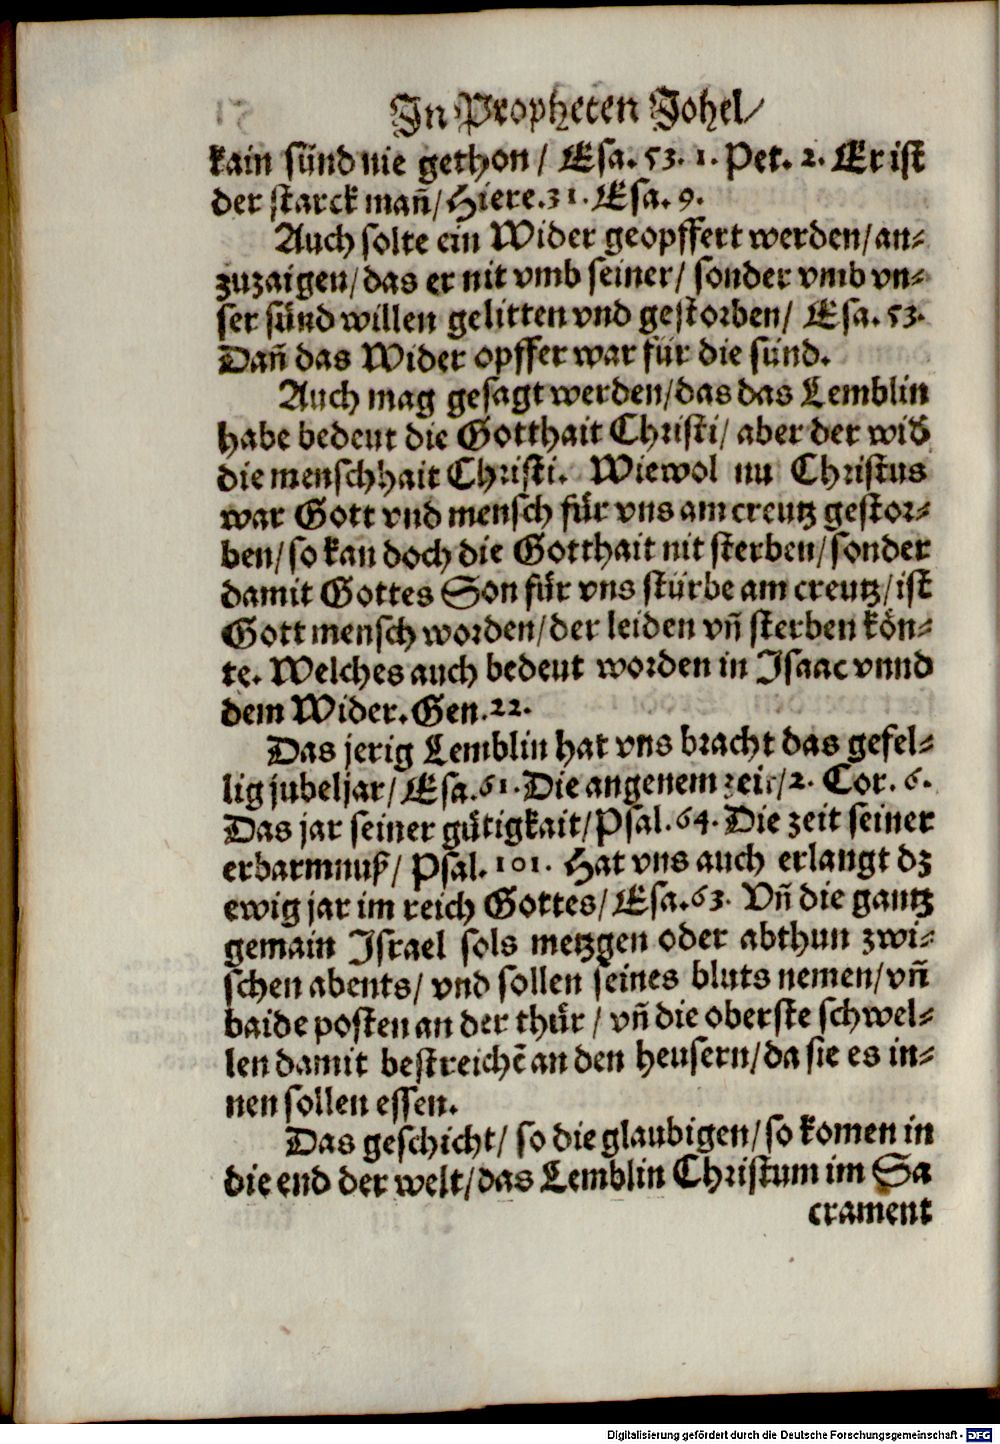 In Propheten Johel/
kain sünd nie gethon/ Esa. 53. 1. Pet. 2. Er ist
der starck mañ/ Hiere. 31. Esa. 9.
Auch solte ein Wider geopffert werden/ an-
zuzaigen/ das er nit vmb seiner/ sonder vmb vn-
ser sünd willen gelitten vnd gestorben/ Esa. 53.
Dañ das Wider opffer war für die sünd.
Auch mag gesagt werden/ das das Lemblin
habe bedeut die Gotthait Christi/ aber der wid̃
die menschhait Christi. Wiewol nu Christus
war Gott vnd mensch für vns am creutz gestor-
ben/ so kan doch die Gotthait nit sterben/ sonder
damit Gottes Son für vns stürbe am creutz/ ist
Gott mensch worden/ der leiden vñ sterben kön-
te. Welches auch bedeut worden in Isaac vnnd
dem Wider. Gen. 22.
Das jerig Lemblin hat vns bracht das gefel-
lig jubeljar/ Esa. 61. Die angenem zeit/ 2. Cor. 6.
Das jar seiner gütigkait/ Psal. 64. Die zeit seiner
erbarmnuß/ Psal. 101. Hat vns auch erlangt dz
ewig jar im reich Gottes/ Esa. 63. Vñ die gantz
gemain Israel sols metzgen oder abthun zwi-
schen abents/ vnd sollen seines bluts nemen/ vñ
baide posten an der thür/ vñ die oberste schwel-
len damit bestreichẽ an den heusern/ da sie es in-
nen sollen essen.
Das geschicht/ so die glaubigen/ so komen in
die end der welt/ das Lemblin Christum im Sa
crament
Digitalisierung gefördert durch die Deutsche Forschungsgemeinschaft - DFG